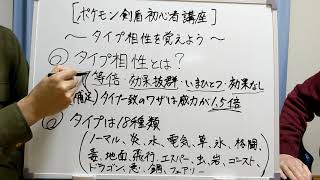 [ポケモン剣盾初心者講座]
～タイプ相性を覚えよう～
◎タイプ相性とは?
(等倍・効果抜群・いまひとつ・効果なし
(補足)タイプ一致のワザは威力が1.5倍
◎タイプは18種類
(ノーマル、炎、水、電気、草、氷、格闘、
毒、地面、飛行、エスパー、虫、岩、ゴースト、
ドラゴン、悪、鋼、フェアリー)